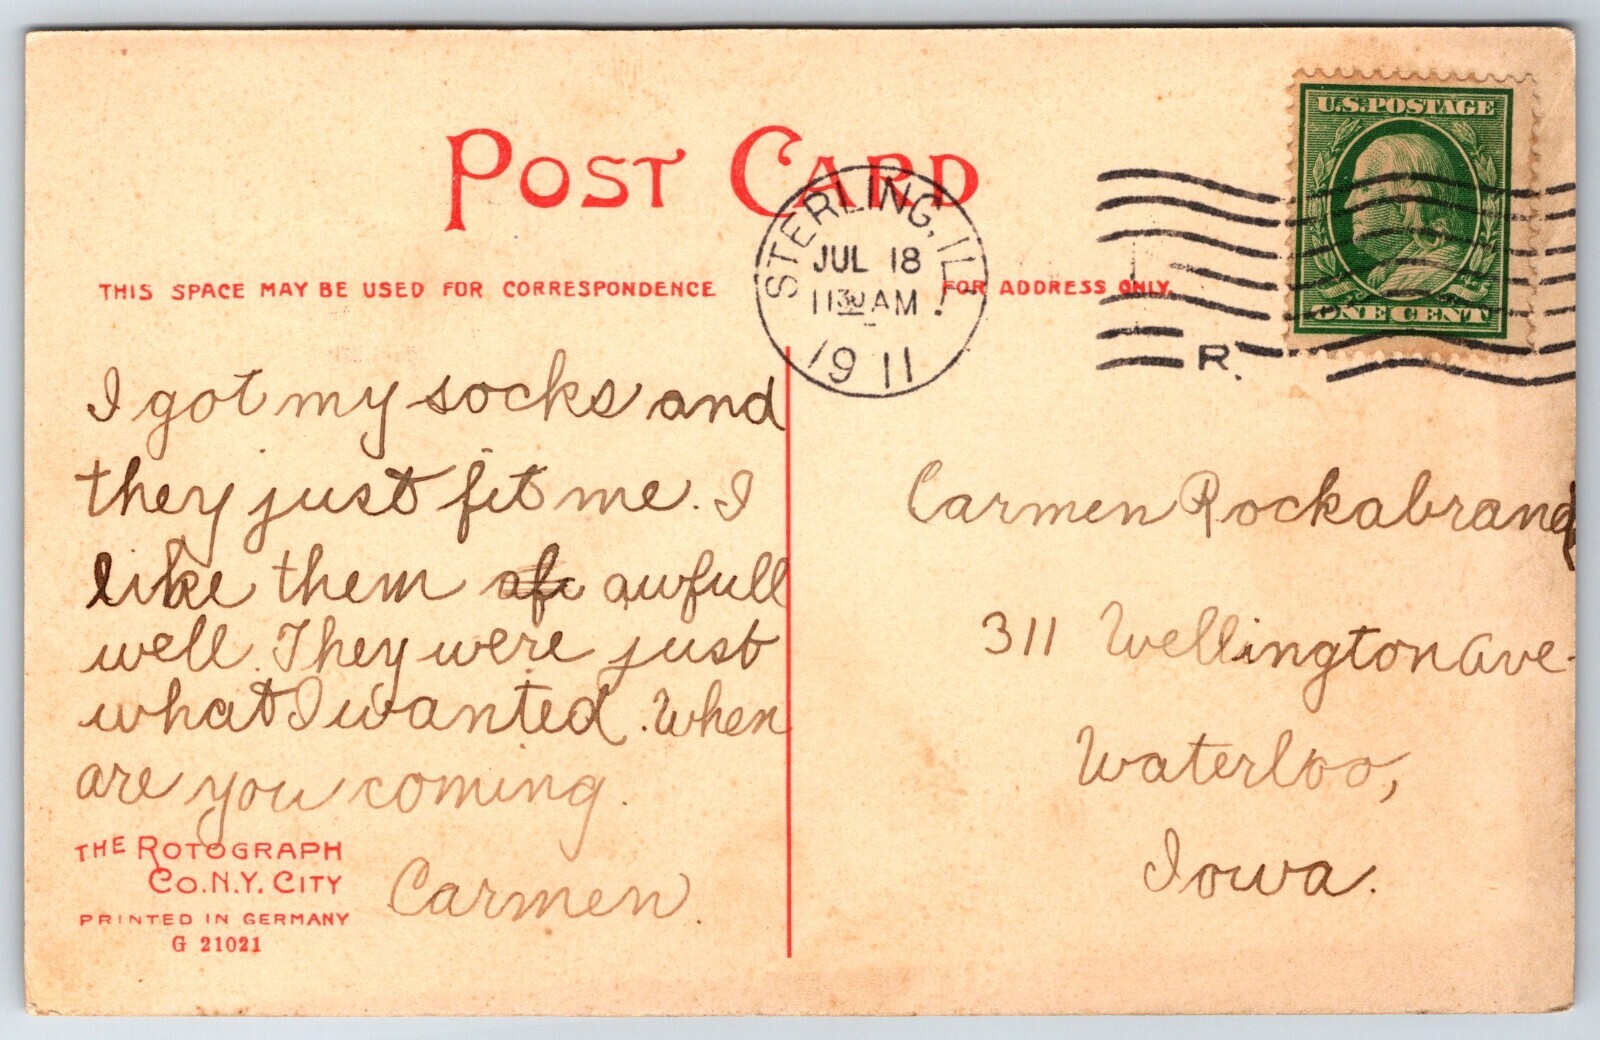 POST CARD
U.S. POSTAGE
ONE CENT
STERLING, ILL.
JUL 18
11 30 AM
1911
R.
THIS SPACE MAY BE USED FOR CORRESPONDENCE
FOR ADDRESS ONLY.
I got my socks and
they just fit me. I
like them awfull
well. They were just
what I wanted. When
are you coming.
Carmen.
THE ROTOGRAPH
CO. N.Y. CITY
PRINTED IN GERMANY
G 21021
Carmen Rockabrand
311 Wellington Ave.
Waterloo,
Iowa.